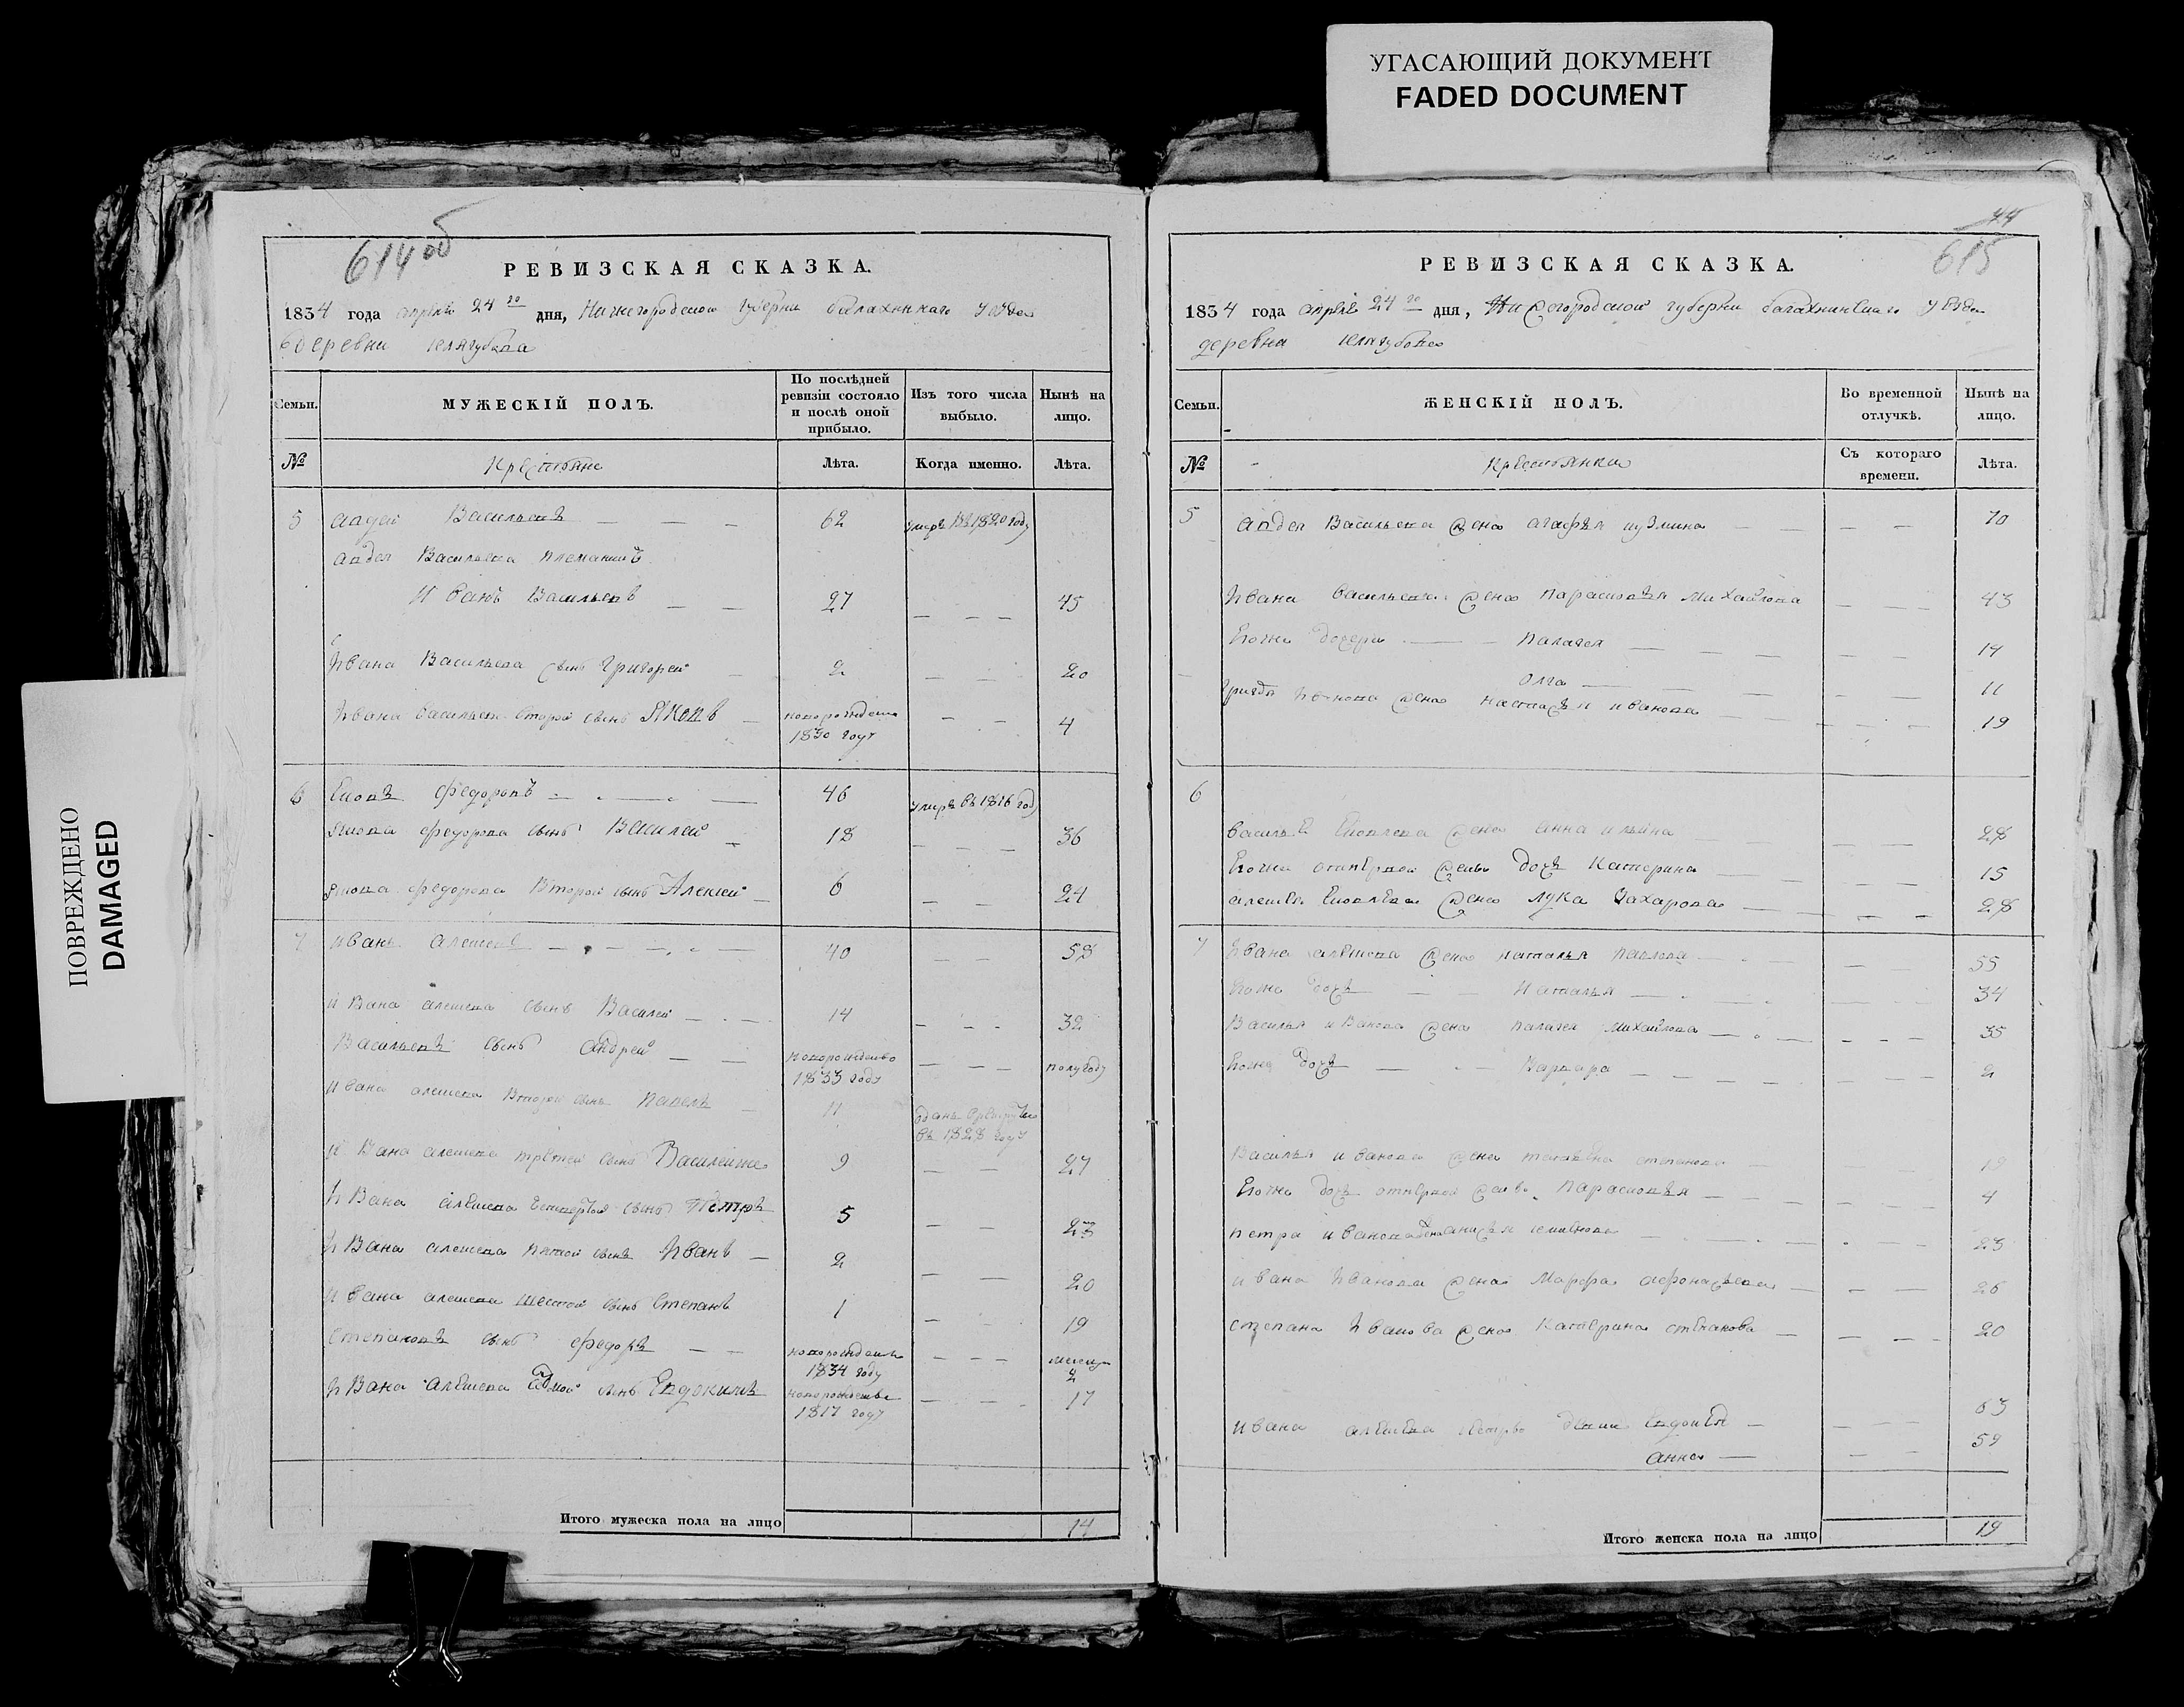 УГАСАЮЩИЙ ДОКУМЕНТ
FADED DOCUMENT
ПОВРЕЖДЕНО
DAMAGED
614 об
РЕВИЗСКАЯ СКАЗКА.
1834 года апреля 24 го дня, Нижегородской губерни балахнинкаго уезда
деревни
Семьи.
МУЖЕСКІЙ ПОЛЪ.
По послѣдней ревизіи состояло и послѣ оной прибыло.
Изъ того числа выбыло.
Нынѣ на лицо.
№
Крестьяне
Лѣта.
Когда именно.
Лѣта.
5 Авдей Васильевъ — — — 62 умръ въ 1820 году
Авдея Васильева племянникъ
Иванъ Васильевъ — — 27 — — — 45
Ивана Васильева сынъ Григорей — 2 — — — 20
Ивана Васильева второй сынъ Яковъ — новорожденъ 1830 году — — 4
6 Федоровъ 46 умръ въ 1816 году
Якова Федорова сынъ Василей — 18 — — — 36
Якова Федорова второй сынъ Алексей — 6 — — 24
7 Иванъ Алексевъ — — — 40 — — 58
Ивана Алексева сынъ Василей — — 14 — — — 32
Васильевъ сынъ Андрей — — новорожденъ 1833 году — — — полугоду
Ивана Алексева второй сынъ Павелъ — 11 въ 1828 году
Ивана Алексева третей сынъ Василей же 9 — — 27
Ивана Алексева четвертой сынъ Петръ 5 — — 23
Ивана Алексева пятой сынъ Иванъ — 2 — — 20
Ивана Алексева шестой сынъ Степанъ 1 — 19
Степановъ сынъ Федоръ — — новорожденъ 1834 году — — — месяца 2
Ивана Алексева седмой сынъ Евдокимъ новорожденъ 1817 году — — — 17
Итого мужеска пола на лицо 14
44
615
РЕВИЗСКАЯ СКАЗКА.
1834 года апреля 24 го дня, Нижегородской губерни балахнинскаго уезда
деревна
Семьи.
ЖЕНСКІЙ ПОЛЪ.
Во временной отлучкѣ.
Нынѣ на лицо.
№
Крестьянки
Съ котораго времени.
Лѣта.
5 Авдея Васильева жена Агафья Кузмина — — — 70
Ивана Васильева жена Парасковья Михайлова — — — 43
Евоже дочери — Палагея — — — 14
Олга — — — 11
Ивонова жена Настасья Иванова — — — 19
6
Василья Яковлева жена Анна Ильина — — 28
Евоже отперво жены дочь Катерина — — — 15
Алексея Яковлева жена Захарова — — — 28
7 Ивана Алексева жена Наталья Павлова — — — 55
Евоже дочь — — Наталья — — — 34
Василья Иванова жена Палагея Михайлова — — — 35
Евоже дочь — — Варвара — — — 2
Василья Иванова жена Степанова —
Евоже дочь отперво жены Парасковья — — — 4
Петра Иванова жена — — — 23
Ивана Иванова жена Марфа Афонасьева — — — 26
Степана Иванова жена Катерина Степанова — — — 20
Ивана Алексева — — — — 63
Анна — — — 59
Итого женска пола на лицо 19